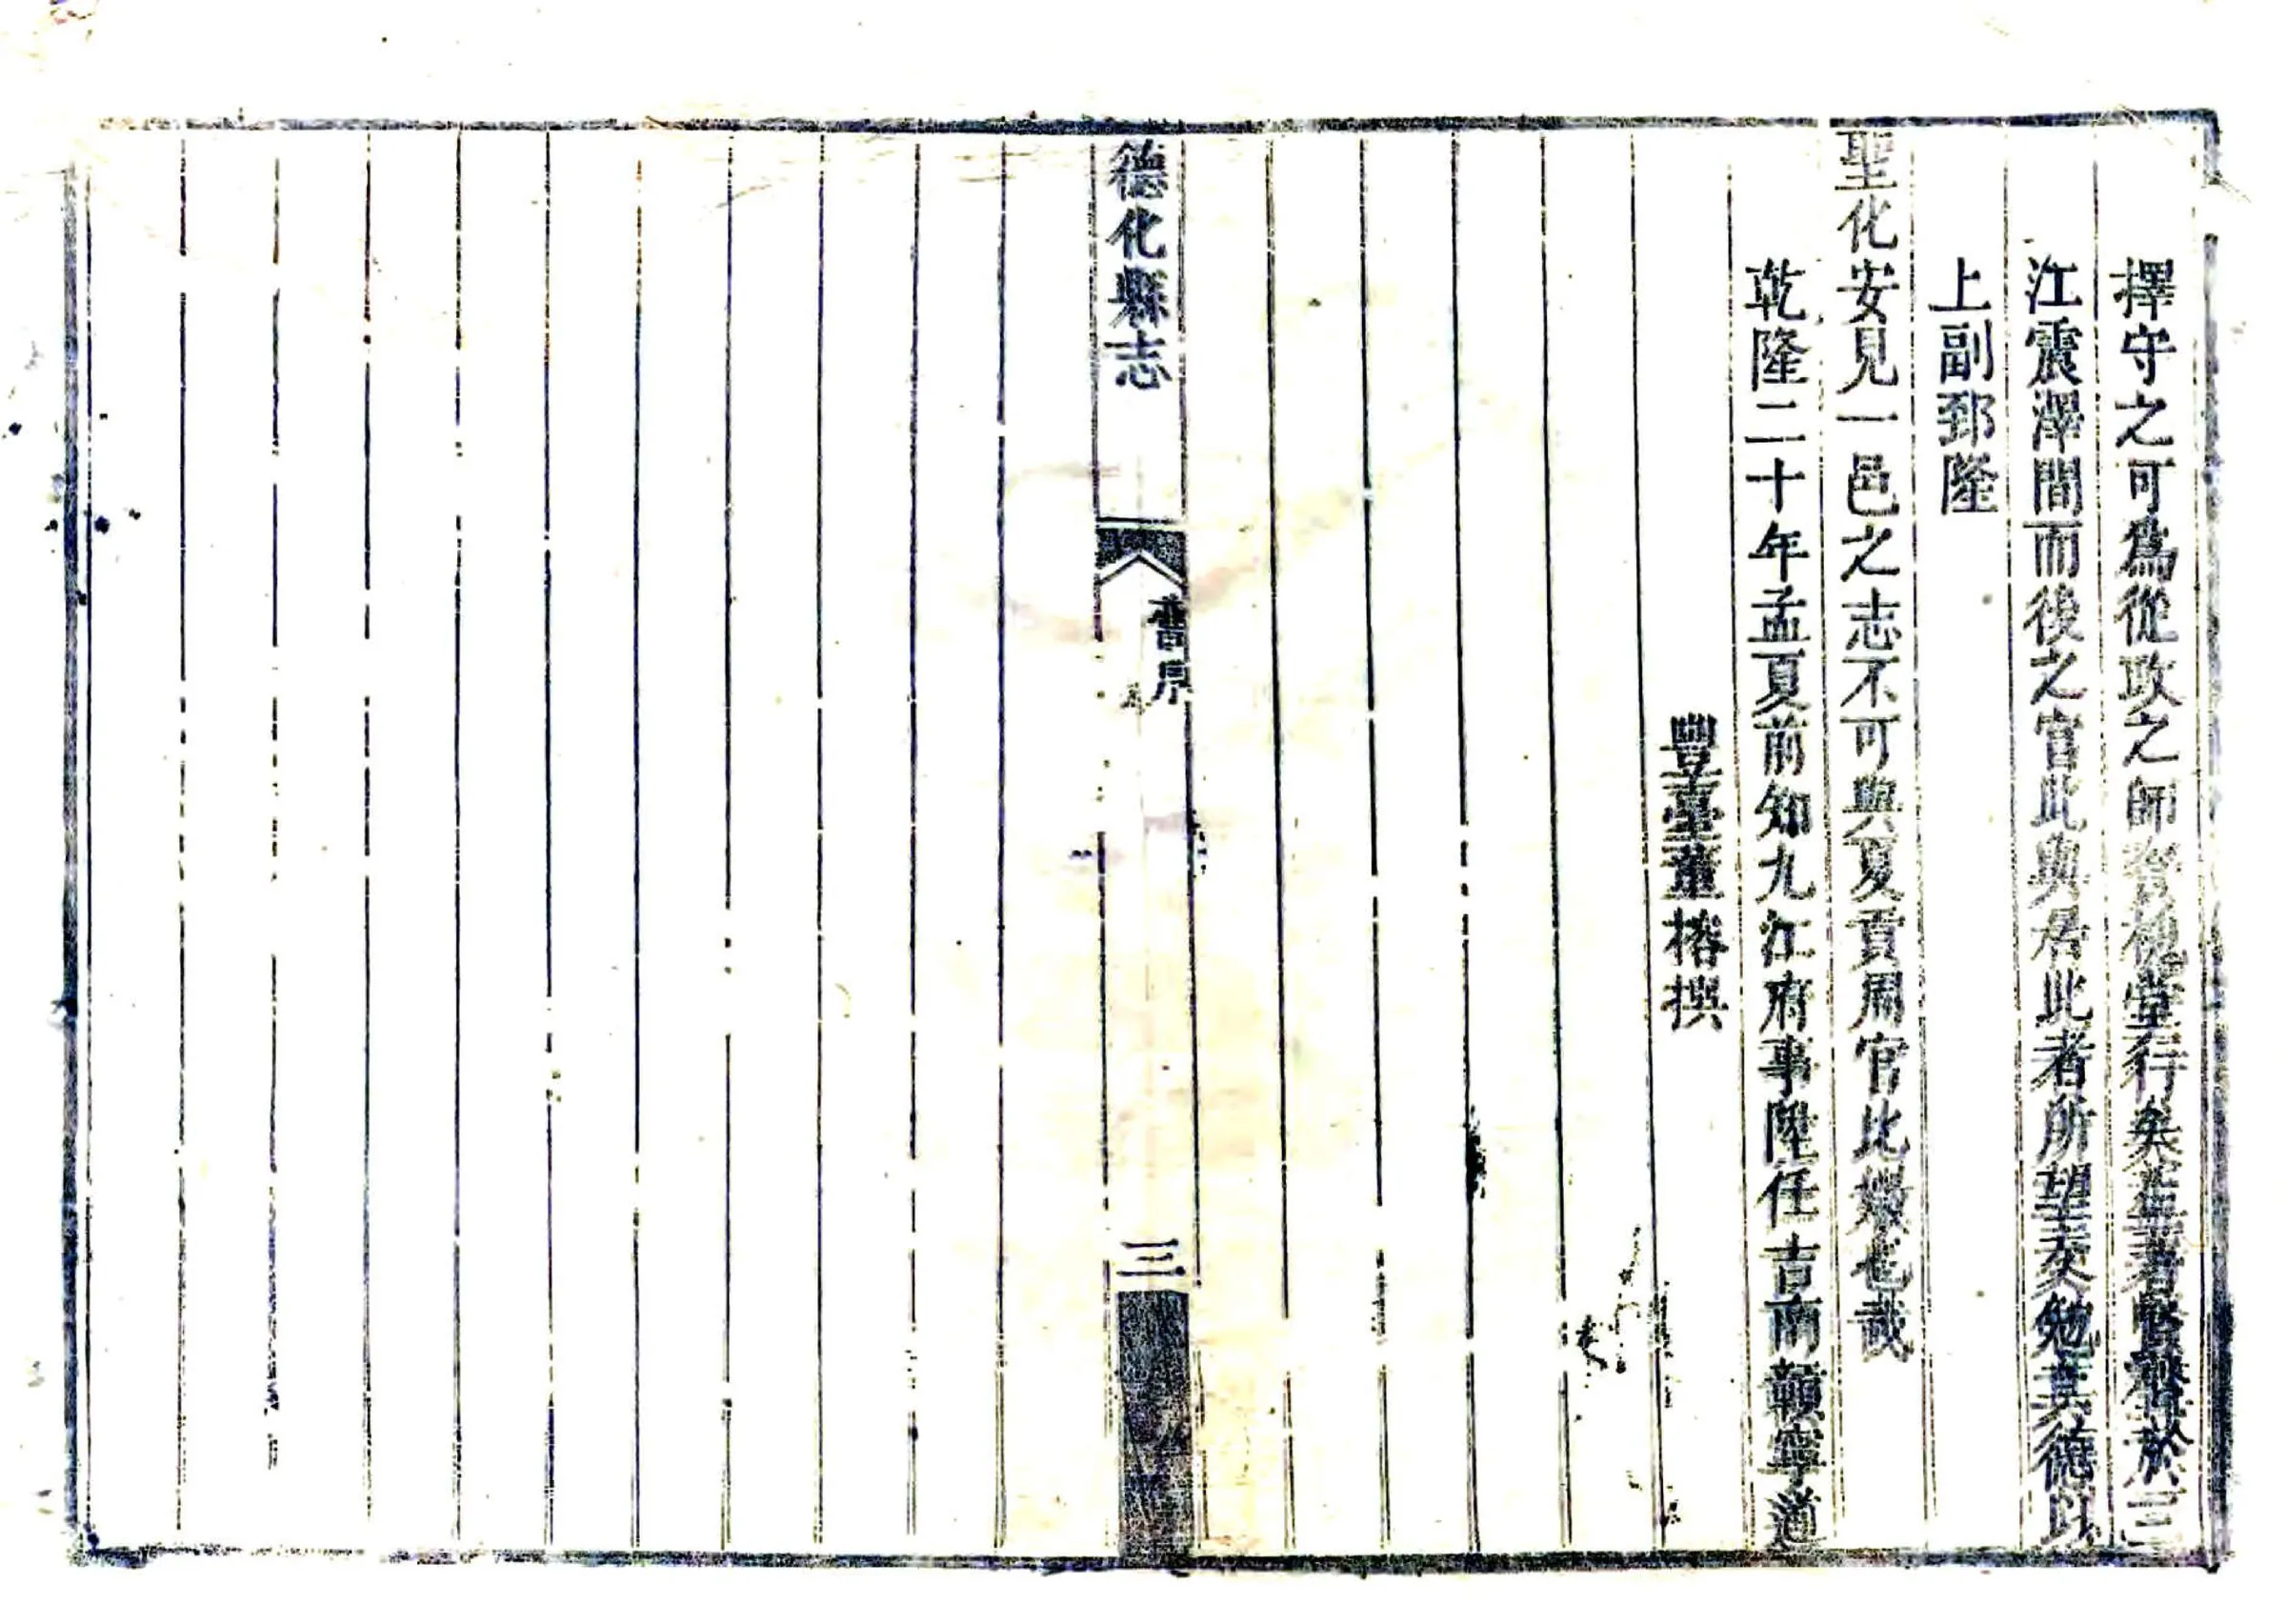 擇守之可為從政之師資槐堂行矣
於三
江震澤間而後之官此與居此者所望交勉其德以
上副郅隆
聖化安見一邑之志不可與夏貢周官比
也哉
乾隆二十年孟夏前知九江府事陞任吉南贛寧道
豐臺董榕撰
德化縣志
舊序
三